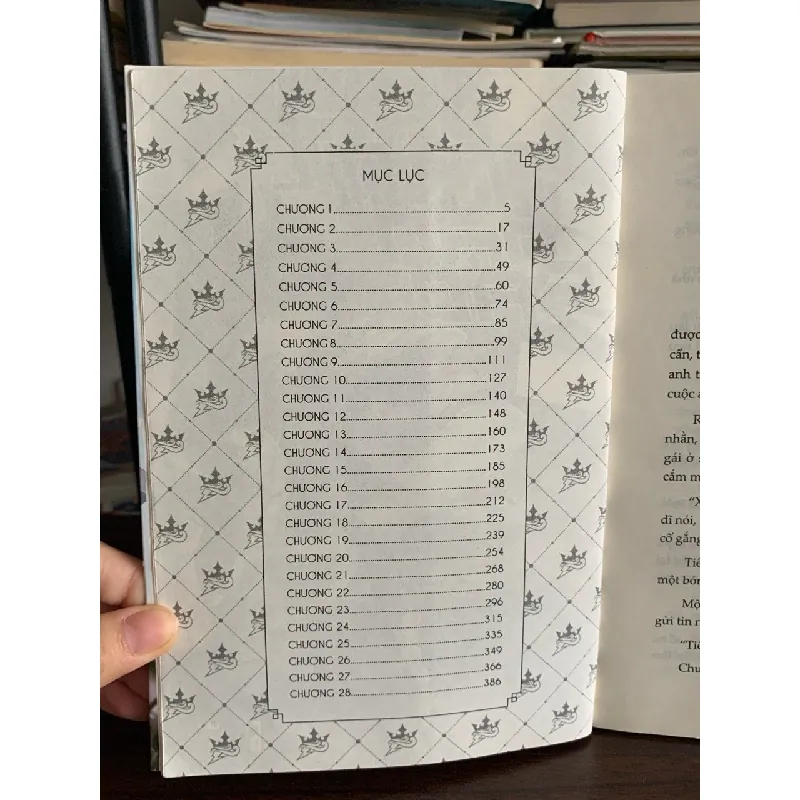 MỤC LỤC
CHƯƠNG 1..........5
CHƯƠNG 2..........17
CHƯƠNG 3..........31
CHƯƠNG 4..........49
CHƯƠNG 5..........60
CHƯƠNG 6..........74
CHƯƠNG 7..........85
CHƯƠNG 8..........99
CHƯƠNG 9..........111
CHƯƠNG 10..........127
CHƯƠNG 11..........140
CHƯƠNG 12..........148
CHƯƠNG 13..........160
CHƯƠNG 14..........173
CHƯƠNG 15..........185
CHƯƠNG 16..........198
CHƯƠNG 17..........212
CHƯƠNG 18..........225
CHƯƠNG 19..........239
CHƯƠNG 20..........254
CHƯƠNG 21..........268
CHƯƠNG 22..........280
CHƯƠNG 23..........296
CHƯƠNG 24..........315
CHƯƠNG 25..........335
CHƯƠNG 26..........349
CHƯƠNG 27..........366
CHƯƠNG 28..........386
được
cẩn, t
anh t
cuộc
R
nhẫn,
gái ở
cắm m
"X
dĩ nói,
cố gắng
Tiế
một bón
Mộ
gửi tin n
"Tiế
Chu